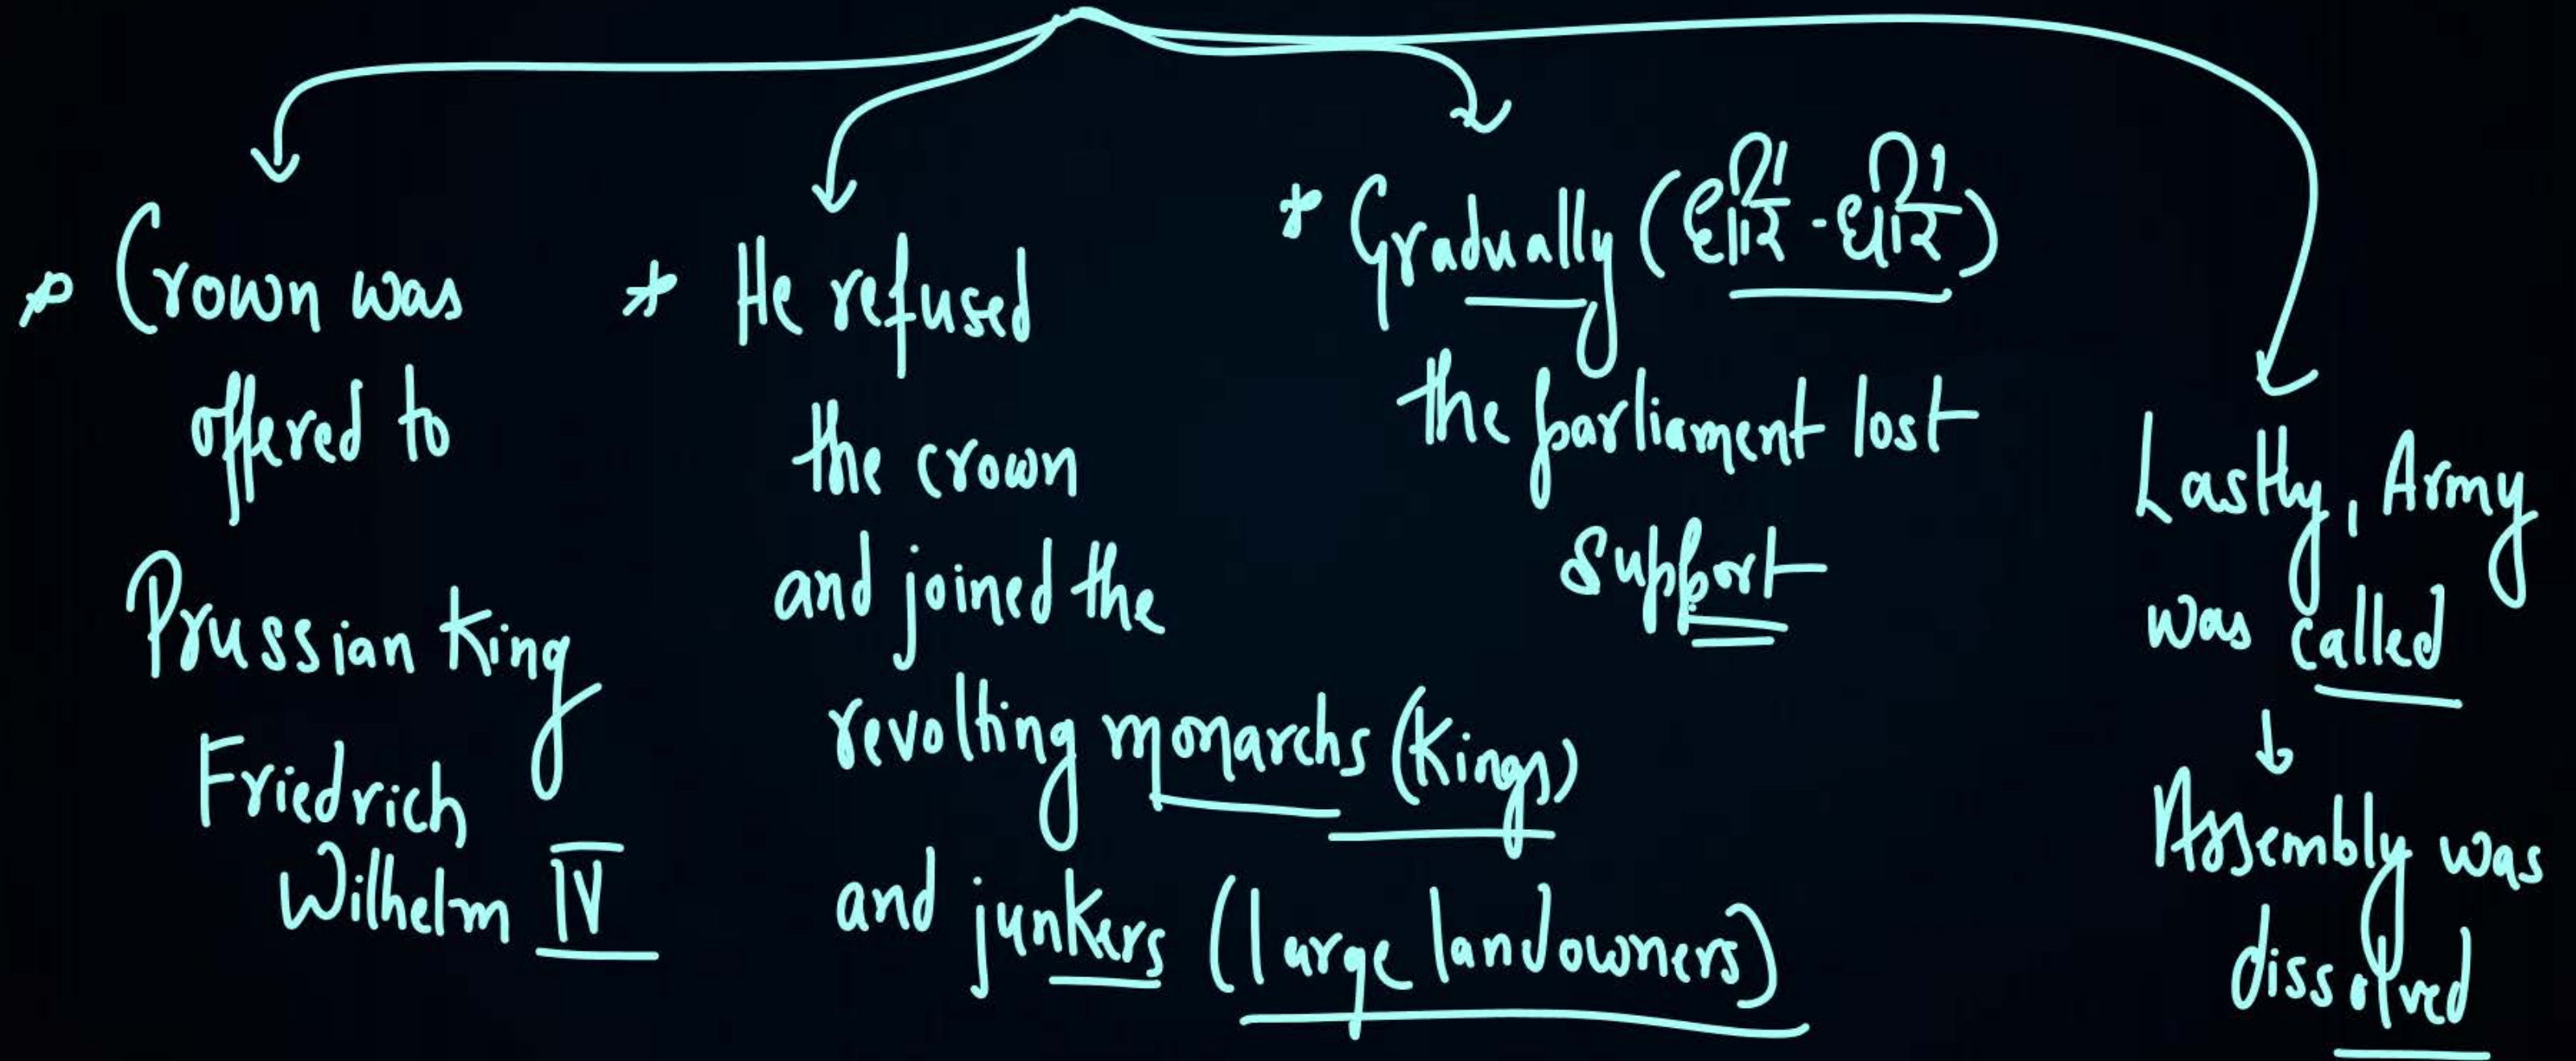 * Crown was
offered to
Prussian King
Friedrich
Wilhelm IV
* He refused
the crown
and joined the
revolting monarchs (Kings)
and junkers (large landowners)
* Gradually (धीरे-धीरे)
the parliament lost
support
Lastly, Army
was called
↓
Assembly was
dissolved